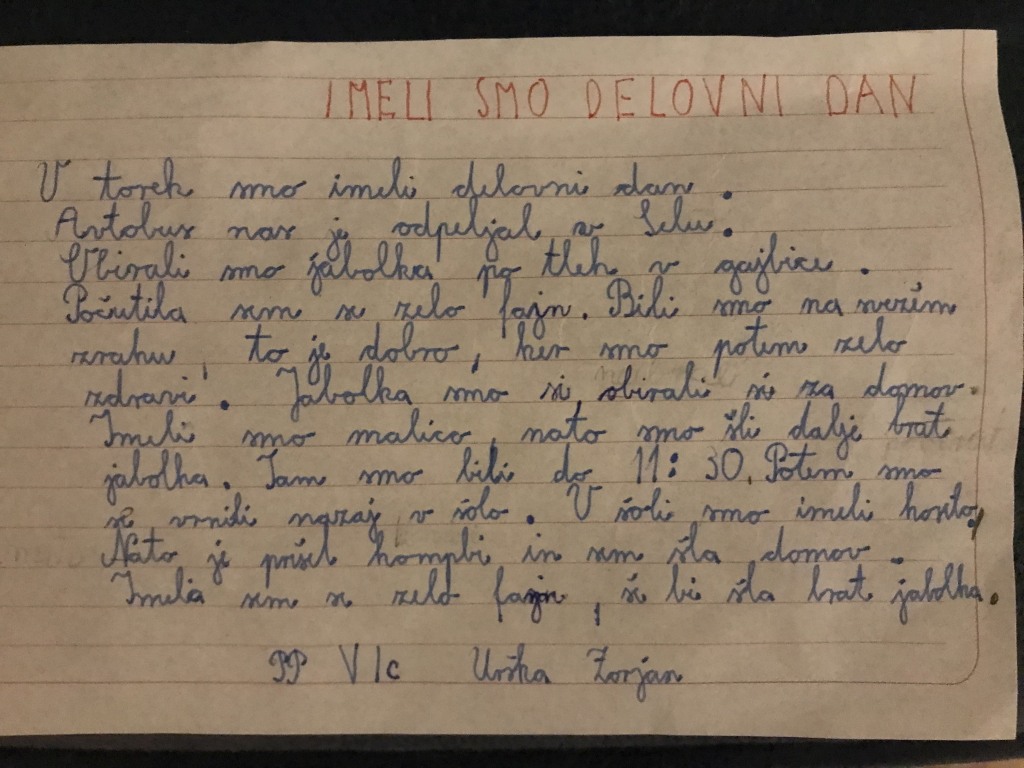 IMELI SMO DELOVNI DAN
V torek smo imeli delovni dan.
Avtobus nas je odpeljal v Selu.
Ubirali smo jabolka po tleh v gajbice.
Počutila sem se zelo fajn. Bili smo na svežem
zraku, to je dobro, ker smo potem zelo
zdravi. Jabolka smo si obirali si za domov.
Imeli smo malico, nato smo šli dalje brat
jabolka. Tam smo bili do 11:30. Potem smo
se vrnili nazaj v šolo. V šoli smo imeli kosilo,
Nato je prišel kombi in sem šla domov.
Imela sem se zelo fajn, še bi šla brat jabolka.
PP V/c Urška Zorjan